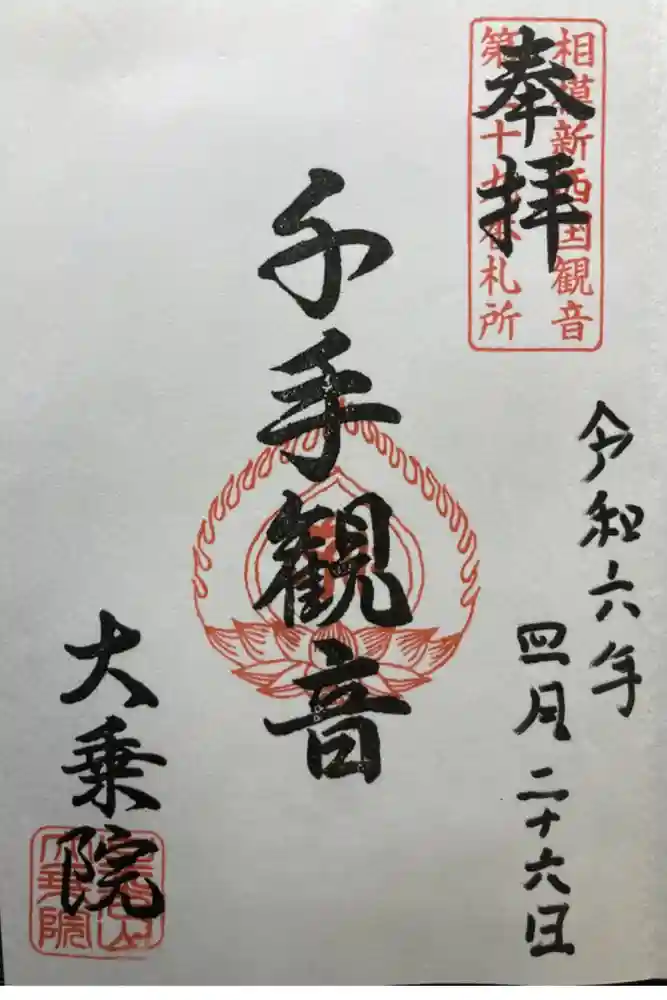 奉拝
相模新西国観音
第二十九番札所
令和六年
四月二十六日
千手観音
大乗院
大乗院